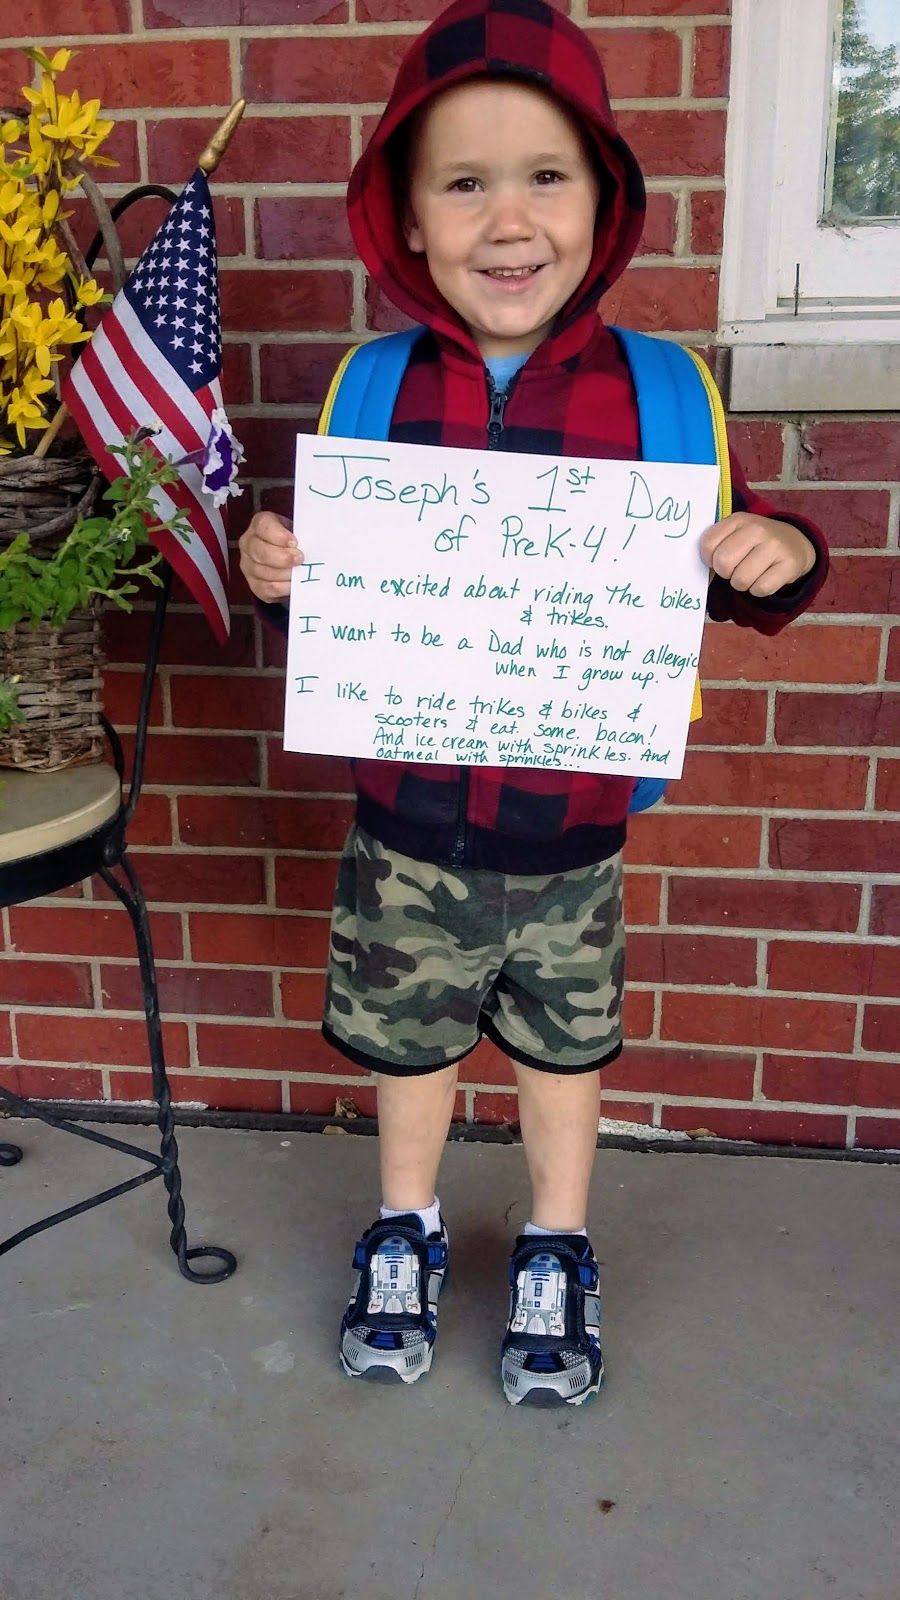 Joseph's 1st Day
of PreK-4!
I am excited about riding the bikes
& trikes.
I want to be a Dad who is not allergic
when I grow up.
I like to ride trikes & bikes &
scooters & eat. Some. bacon!
And ice cream with sprinkles. And
oatmeal with sprinkles...